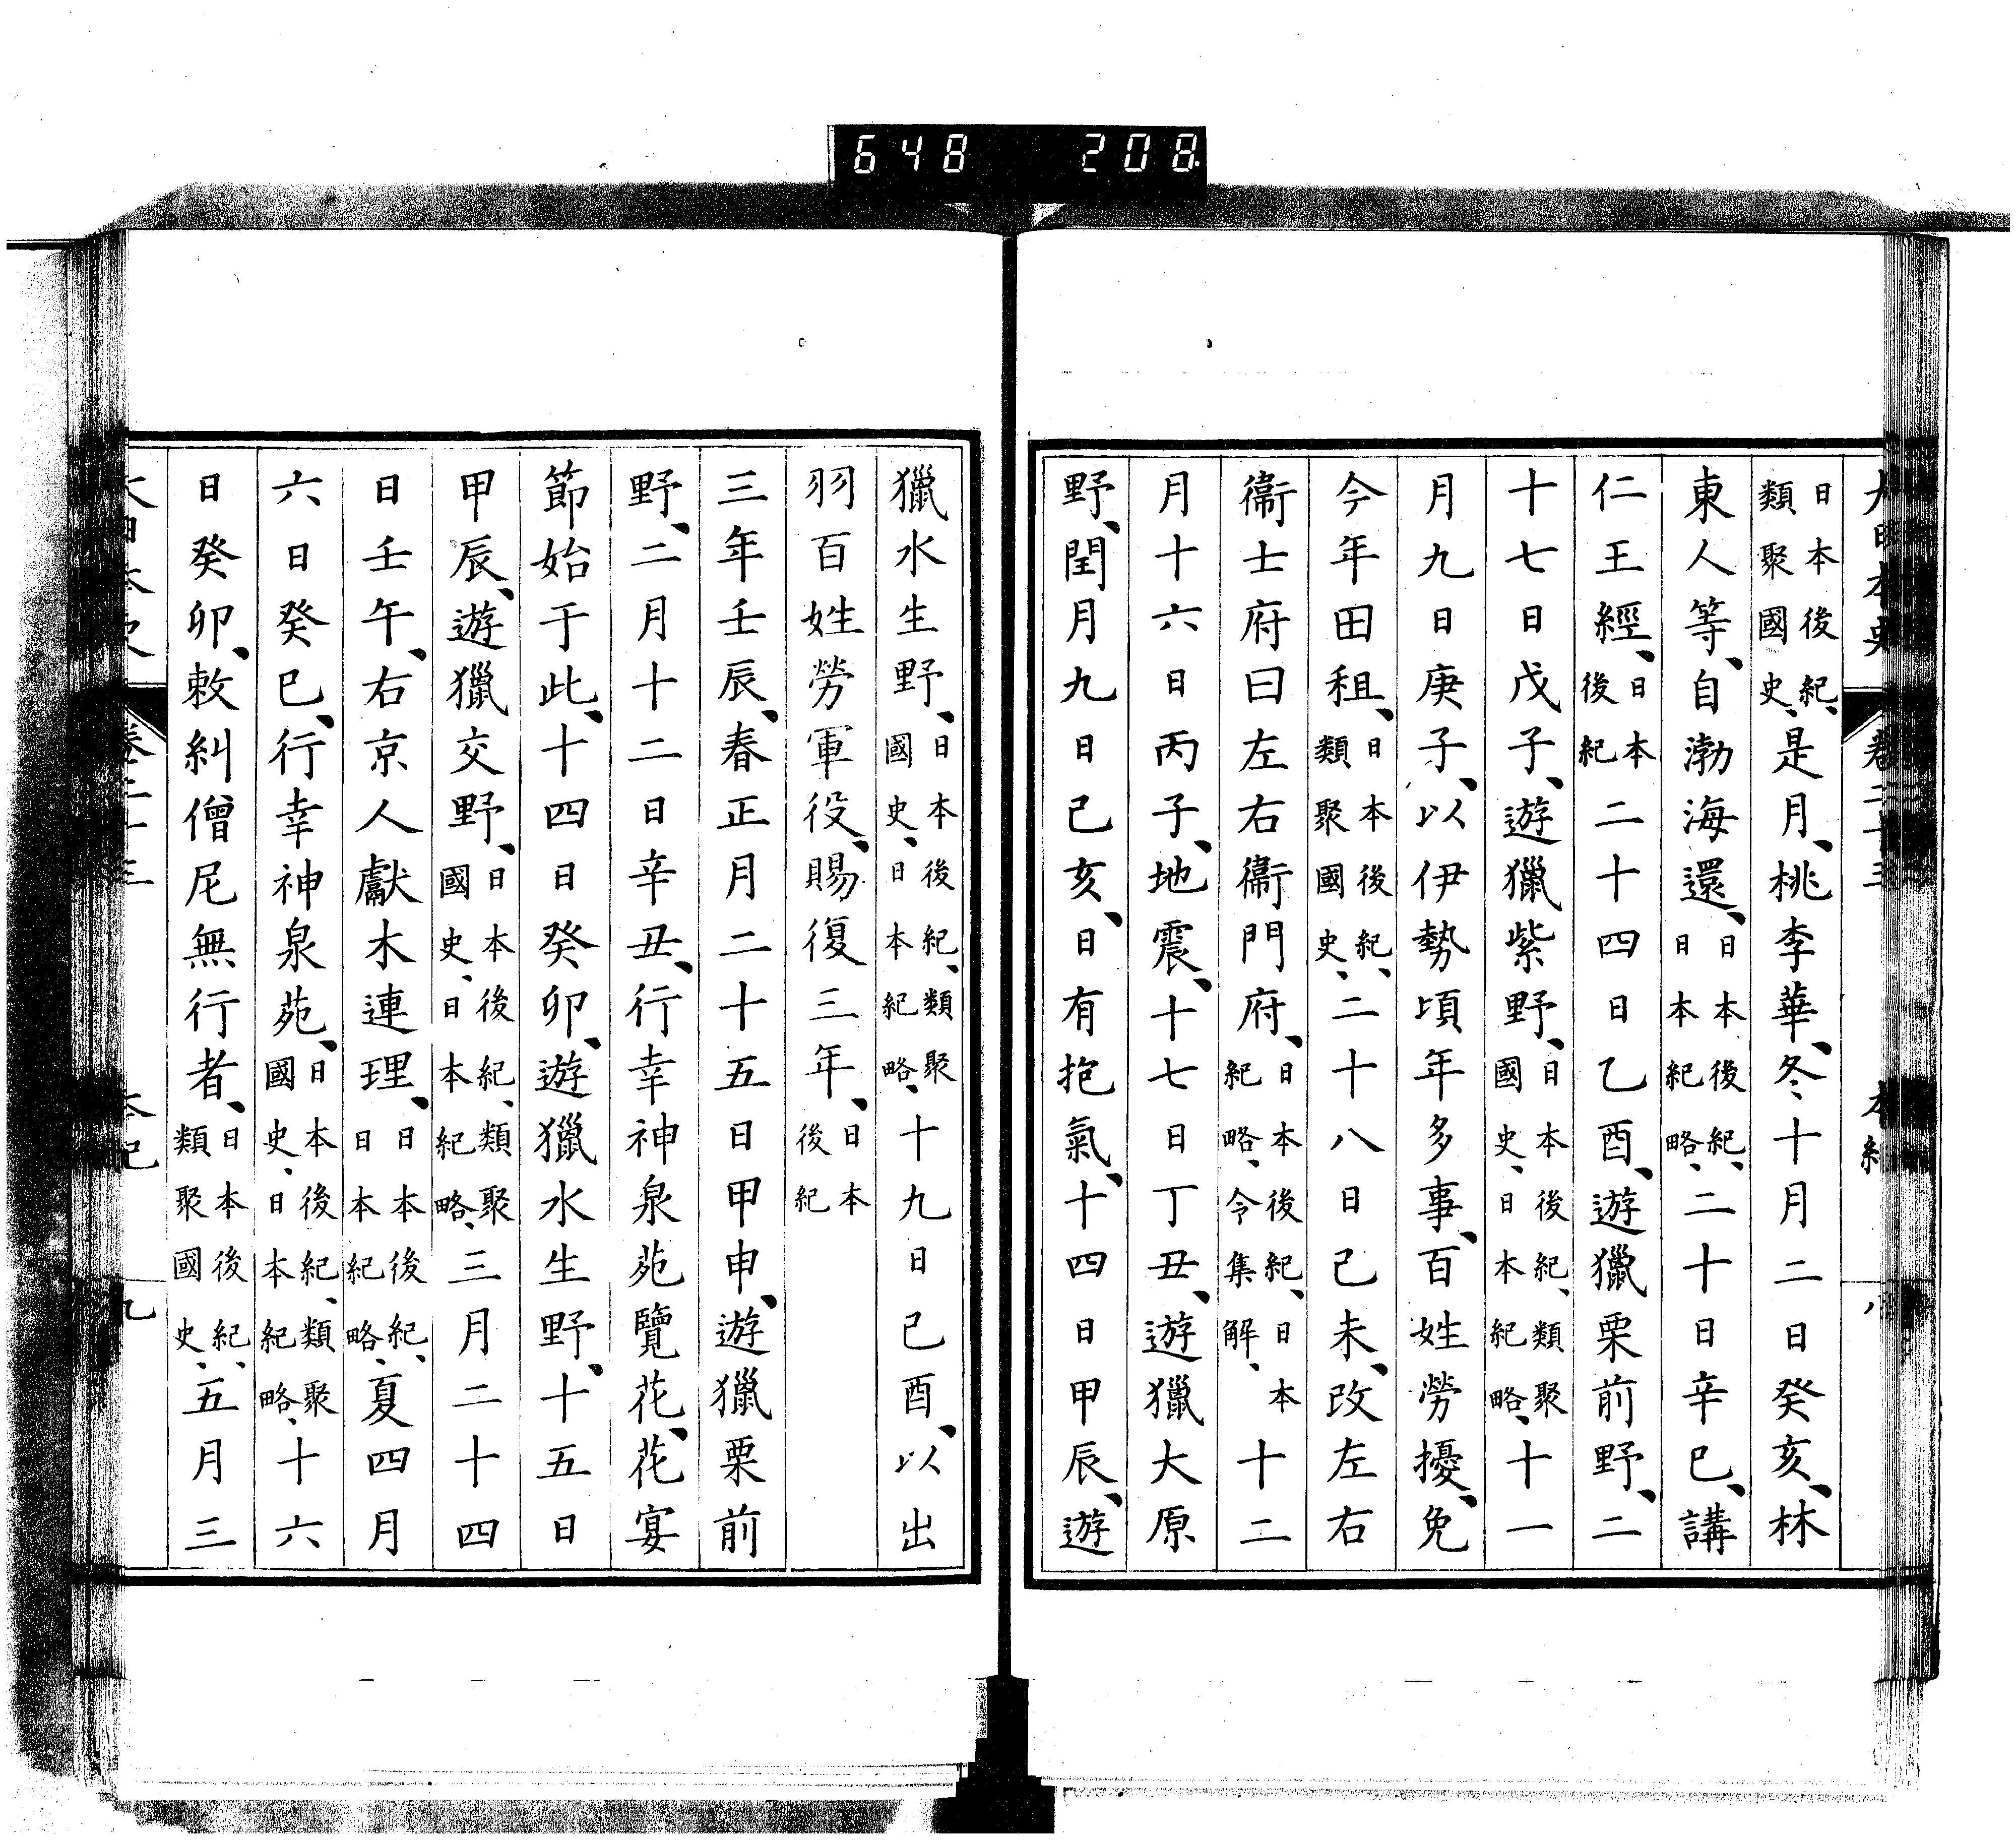 648 208
大日本史 卷二十三 本紀 八
日本後紀、類聚國史、是月、桃李華、冬十月二日癸亥、林
東人等、自渤海還、日本後紀、日本紀略、二十日辛巳、講
仁王經、日本後紀二十四日乙酉、遊獵栗前野、二
十七日戊子、遊獵紫野、日本後紀、類聚國史、日本紀略、十一
月九日庚子、以伊勢頃年多事、百姓勞擾、免
今年田租、日本後紀、類聚國史、二十八日己未、改左右
衞士府曰左右衞門府、日本後紀、日本紀略、令集解、十二
月十六日丙子、地震、十七日丁丑、遊獵大原
野、閏月九日己亥、日有抱氣、十四日甲辰、遊
獵水生野、日本後紀、類聚國史、日本紀略、十九日己酉、以出
羽百姓勞軍役、賜復三年、日本後紀
三年壬辰、春正月二十五日甲申、遊獵栗前
野、二月十二日辛丑、行幸神泉苑覽花、花宴
節始于此、十四日癸卯、遊獵水生野、十五日
甲辰、遊獵交野、日本後紀、類聚國史、日本紀略、三月二十四
日壬午、右京人獻木連理、日本後紀、日本紀略、夏四月
六日癸巳、行幸神泉苑、日本後紀、類聚國史、日本紀略、十六
日癸卯、敕糾僧尼無行者、日本後紀、類聚國史、五月三
大日本史 卷二十三 本紀 九